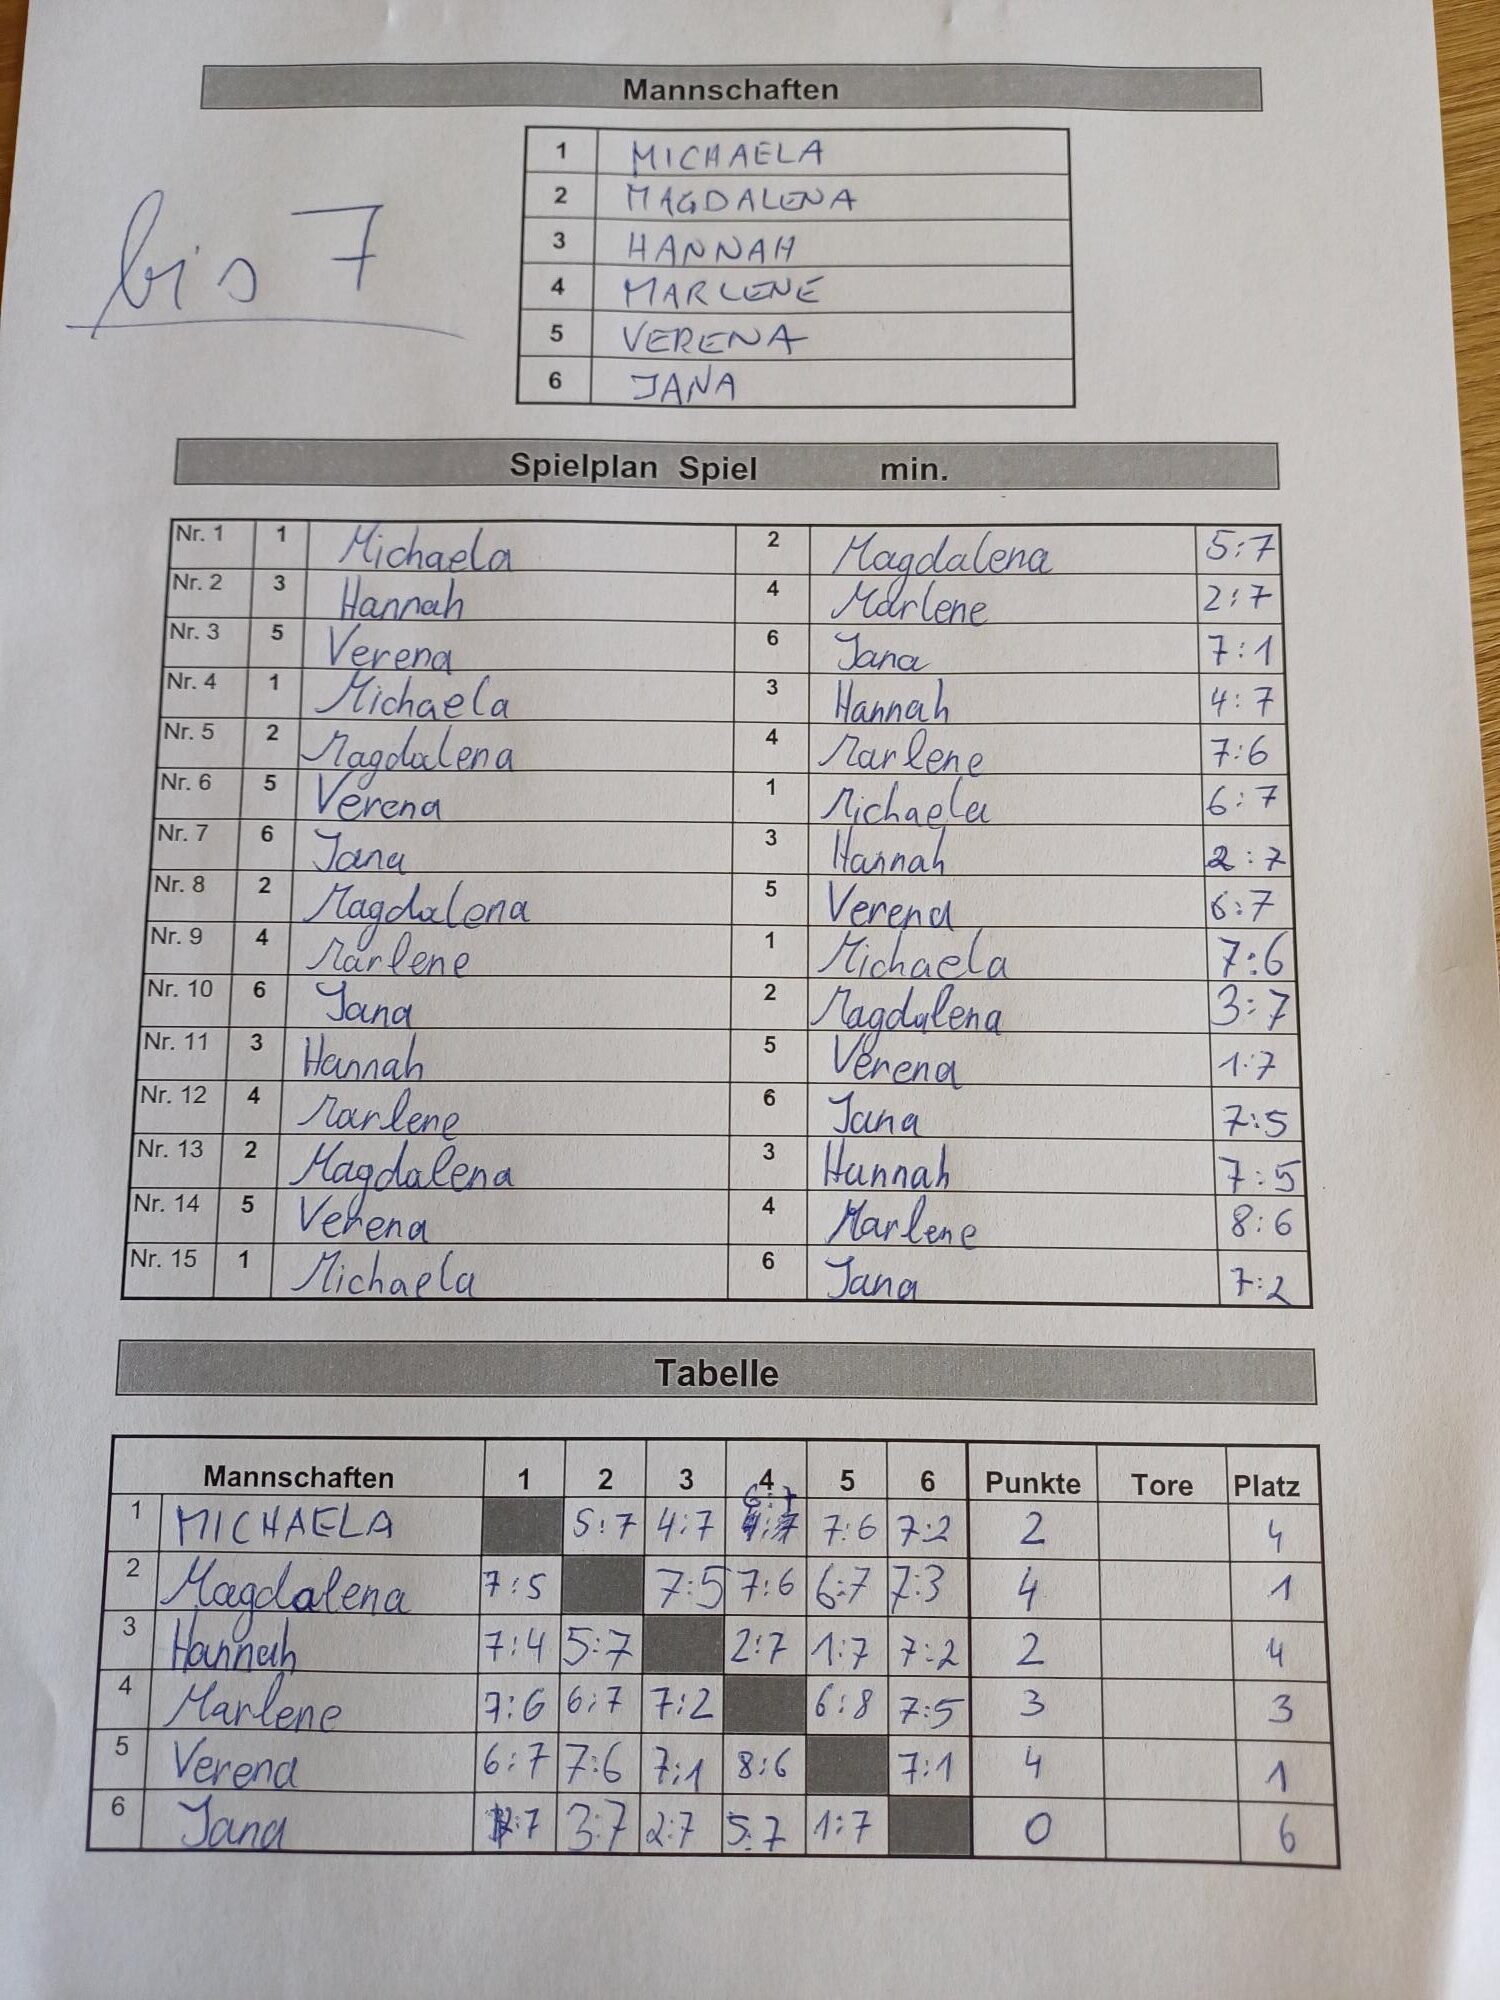 Mannschaften
1 MICHAELA
2 MAGDALENA
3 HANNAH
4 MARLENE
5 VERENA
6 JANA
bis 7
Spielplan Spiel min.
Nr. 1 1 Michaela 2 Magdalena 5:7
Nr. 2 3 Hannah 4 Marlene 2:7
Nr. 3 5 Verena 6 Jana 7:1
Nr. 4 1 Michaela 3 Hannah 4:7
Nr. 5 2 Magdalena 4 Marlene 7:6
Nr. 6 5 Verena 1 Michaela 6:7
Nr. 7 6 Jana 3 Hannah 2:7
Nr. 8 2 Magdalena 5 Verena 6:7
Nr. 9 4 Marlene 1 Michaela 7:6
Nr. 10 6 Jana 2 Magdalena 3:7
Nr. 11 3 Hannah 5 Verena 1:7
Nr. 12 4 Marlene 6 Jana 7:5
Nr. 13 2 Magdalena 3 Hannah 7:5
Nr. 14 5 Verena 4 Marlene 8:6
Nr. 15 1 Michaela 6 Jana 7:2
Tabelle
Mannschaften 1 2 3 4 5 6 Punkte Tore Platz
1 MICHAELA 5:7 4:7 6:7 7:6 7:2 2 4
2 Magdalena 7:5 7:5 7:6 6:7 7:3 4 1
3 Hannah 7:4 5:7 2:7 1:7 7:2 2 4
4 Marlene 7:6 6:7 7:2 6:8 7:5 3 3
5 Verena 6:7 7:6 7:1 8:6 7:1 4 1
6 Jana 2:7 3:7 2:7 5:7 1:7 0 6